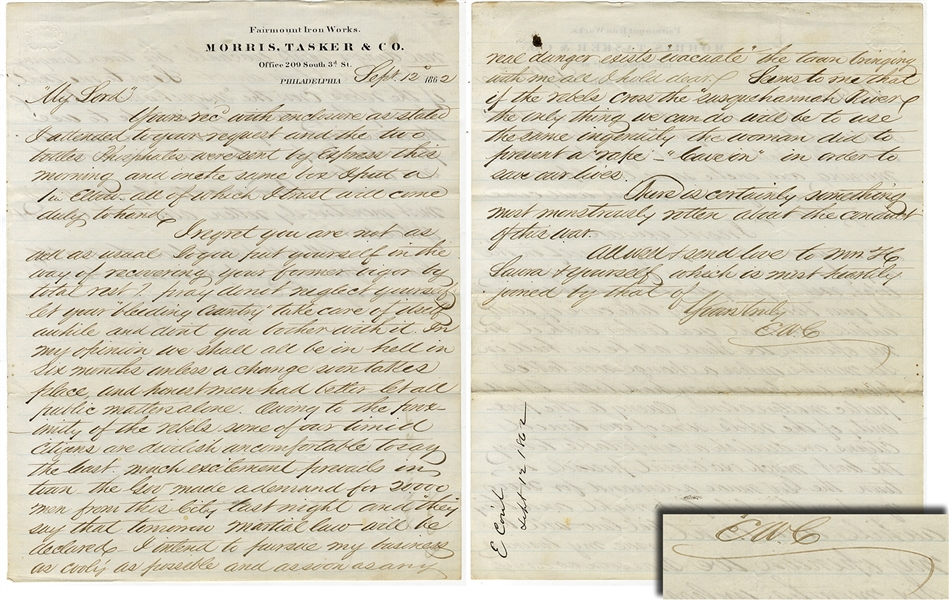 Fairmount Iron Works.
MORRIS, TASKER & CO.
Office 209 South 3d St.
PHILADELPHIA Sept 12" 1862
"My Lord"
Yours rec'd with enclosure as stated
I attended to your request and the two
bottles Phosphates were sent by Express this
morning and in the same box I put a
all of which I trust will come
duly to hand.
I regret you are not as
well as usual. So you put yourself in the
way of recovering your former vigor by
total rest? pray don't neglect yourself
let your "bleeding country" take care of itself
awhile and don't you bother with it. In
my opinion we shall all be in hell in
six months unless a change soon takes
place, and honest men had better let all
public matters alone. Owing to the prox-
imity of the rebels some of our timid
citizens are devilish uncomfortable to say
the least. much excitement prevails in
town the Gov made a demand for 20000
men from this City last night and they
say that tomorrow Martial law will be
declared. I intend to pursue my business
as cooly as possible and as soon as any
real danger exists evacuate the town bringing
with me all I hold dear. Seems to me that
if the rebels cross the "Susquehannah River"
the only thing we can do will be to use
the same ingenuity the woman did to
prevent a "rape" - "leave on" in order to
save our lives.
There is certainly something
most monstrously rotten about the conduct
of this war.
All well & send love to Mrs H C
Laura & yourself, which is most heartily
joined by that of
Yours truly
E W C
E
Sept 12 1862
E W C